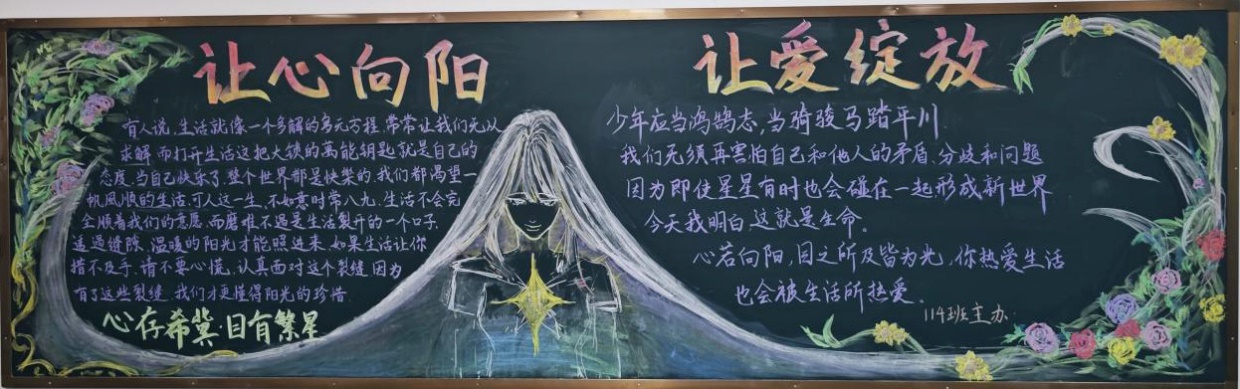 让心向阳
有人说,生活就像一个多解的多元方程,常常让我们无从
求解,而打开生活这把大锁的萬能钥匙就是自己的
态度,当自己快乐了,整个世界都是快樂的,我们都渴望一
帆風順的生活,可人这一生,不如意时常八九,生活不会完
全顺着我们的意愿,而磨难不過是生活裂开的一个口子,
透過缝隙,温暖的阳光才能照进来,如果生活让你
措不及手,请不要心慌,认真面对这个裂缝,因为
有了这些裂缝,我们才更懂得阳光的珍惜
心存希冀·目有繁星
让爱绽放
少年应当鸿鹄志,当骑骏马踏平川
我们无须再害怕自己和他人的矛盾、分歧和问题
因为即使星星有时也会碰在一起,形成新世界
今天我明白,这就是生命。
心若向阳,目之所及皆为光,你热爱生活
也会被生活所热爱。
114班主办